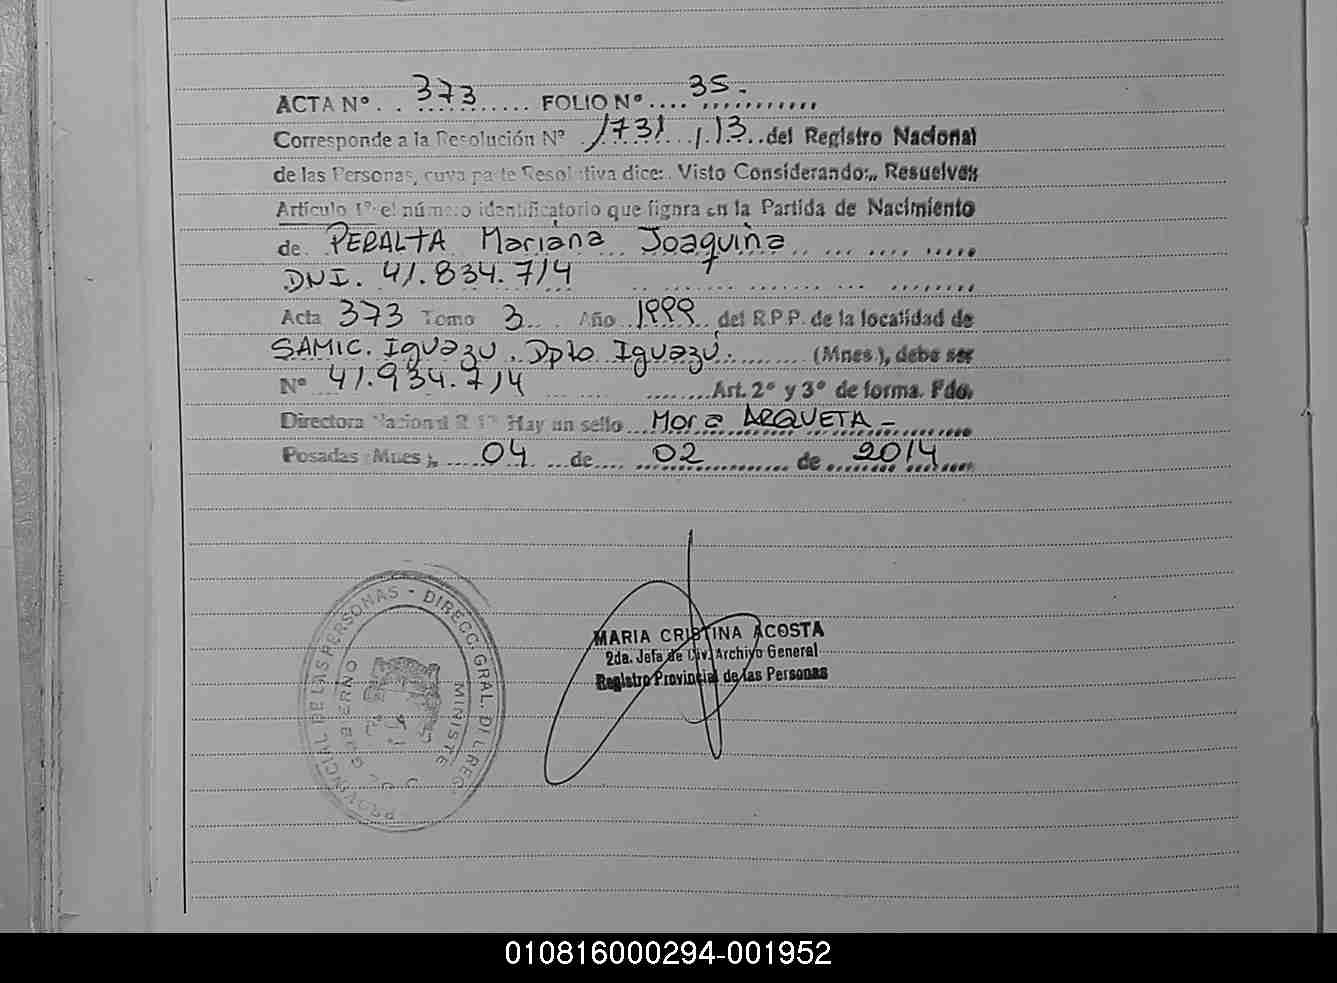 ACTA Nº 373 FOLIO Nº 35.
Corresponde a la Resolución Nº 1731/13 del Registro Nacional
de las Personas, cuya parte Resolutiva dice: Visto Considerando: Resuelve:
Artículo 1º el número identificatorio que figura en la Partida de Nacimiento
de PERALTA Mariana Joaquina
DNI. 41.834.714
Acta 373 Tomo 3 Año 1999 del R.P.P. de la localidad de
SAMIC. Iguazu. Dpto Iguazú. (Mnes), debe ser
Nº 41.934.714 Art. 2º y 3º de forma. Fdo.
Directora Nacional Hay un sello Mora ARQUETA -
Posadas (Mnes), 04 de 02 de 2014
PROVINCIAL DE LAS PERSONAS - DIRECC. GRAL. DEL REG.
GOBIERNO
MARIA CRISTINA ACOSTA
2da. Jefa de Div. Archivo General
Registro Provincial de las Personas
010816000294-001952